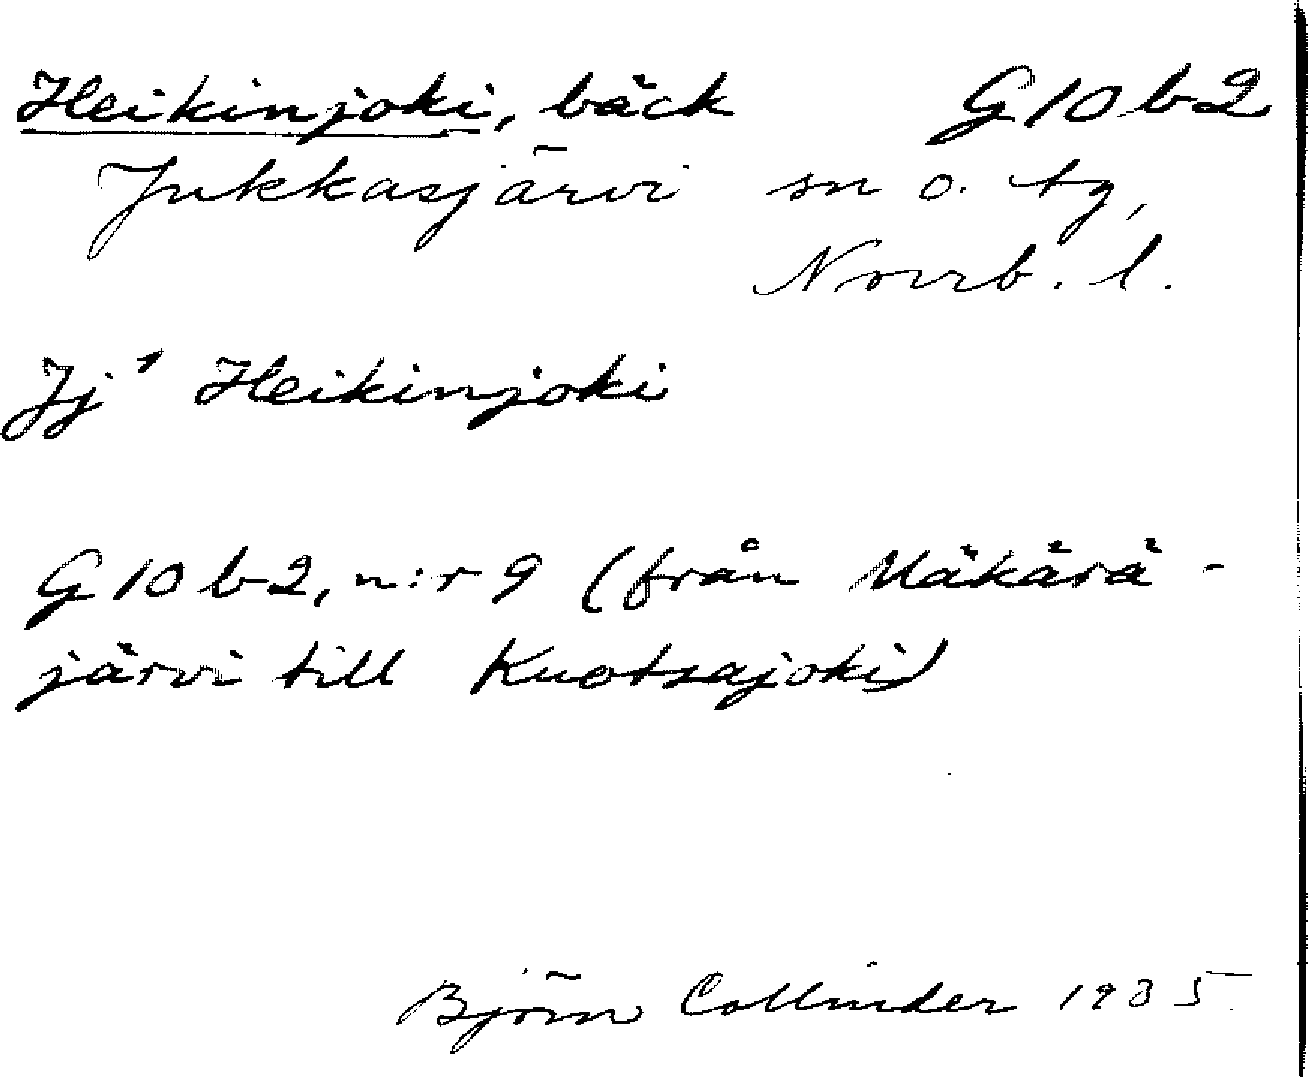 Heikinjoki, bäck G10b2
Jukkasjärvi sn o. tg,
Norrb. l.
Jj¹ Heikinjoki
G10b2, n:r 9 (från Mäkärä-
järvi till Kuotsajoki)
Björn Collinder 1935